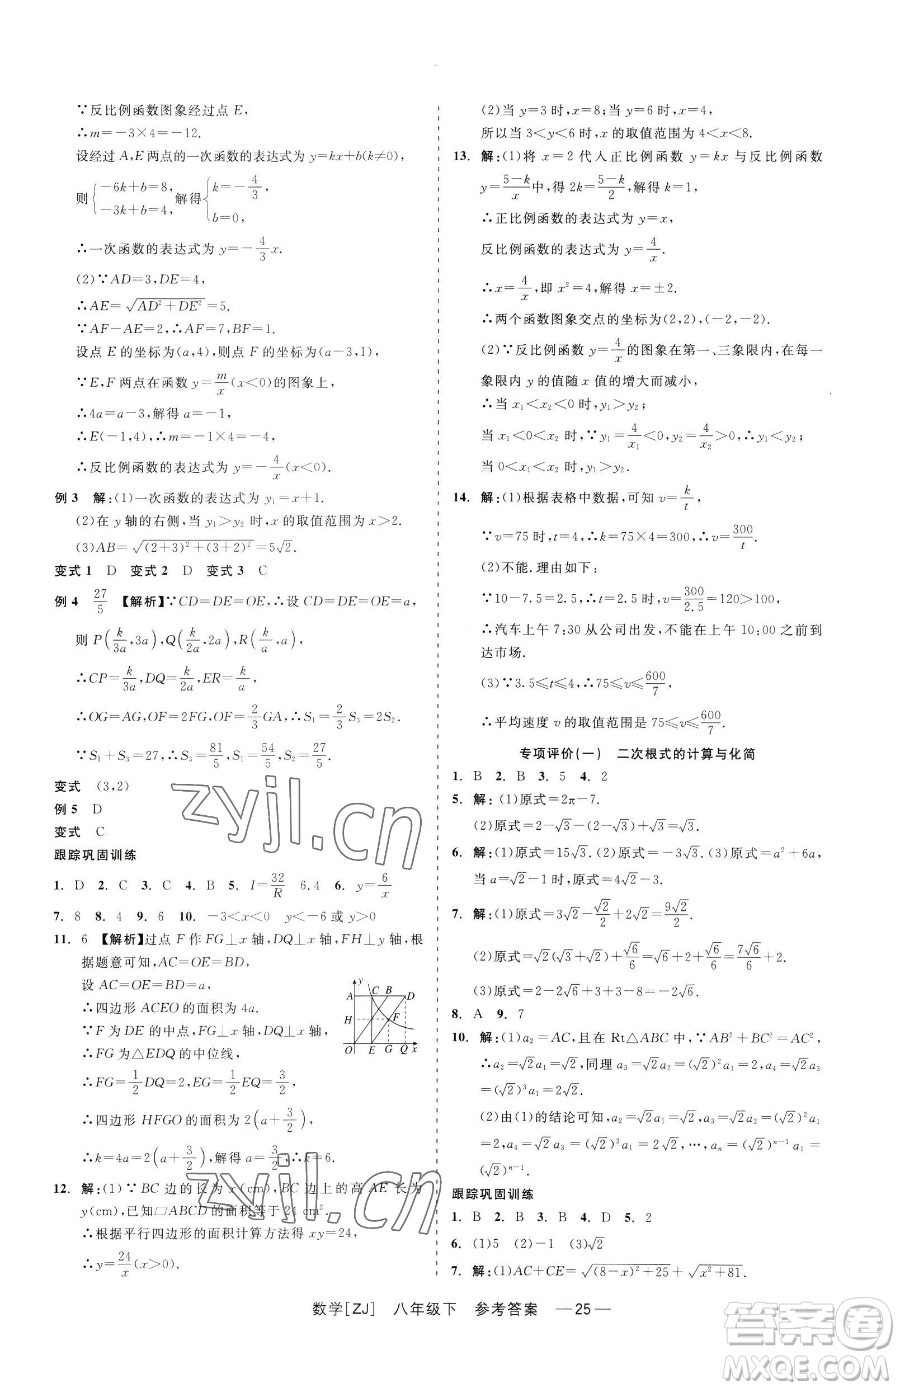 ∵反比例函数图象经过点 E,
∴m=-3×4=-12.
设经过 A,E 两点的一次函数的表达式为 y=kx+b(k≠0),
则{-6k+b=8, -3k+b=4, 解得{k=-4/3, b=0,
∴一次函数的表达式为 y=-4/3 x.
(2)∵AD=3,DE=4,
∴AE=√(AD²+DE²)=5.
∵AF-AE=2,∴AF=7,BF=1.
设点 E 的坐标为(a,4),则点 F 的坐标为(a-3,1),
∵E,F 两点在函数 y=m/x(x<0)的图象上,
∴4a=a-3,解得 a=-1,
∴E(-1,4),∴m=-1×4=-4,
∴反比例函数的表达式为 y=-4/x(x<0).
例 3 解:(1)一次函数的表达式为 y₁=x+1.
(2)在 y 轴的右侧,当 y₁>y₂ 时,x 的取值范围为 x>2.
(3)AB=√((2+3)²+(3+2)²)=5√2.
变式 1 D 变式 2 D 变式 3 C
例 4 27/5 【解析】∵CD=DE=OE,∴设 CD=DE=OE=a,
则 P(k/3a,3a),Q(k/2a,2a),R(k/a,a),
∴CP=k/3a,DQ=k/2a,ER=k/a.
∴OG=AG,OF=2FG,OF=2/3 GA,∴S₁=2/3 S₃=2S₂.
∵S₁+S₃=81/5,S₁=54/5,S₂=27/5.
变式 (3,2)
例 5 D
变式 C
跟踪巩固训练
1. D 2. C 3. C 4. B 5. I=32/R 6.4 6. y=6/x
7. 8 8. 4 9. 6 10. -3<x<0 y<-6 或 y>0
11. 6 【解析】过点 F 作 FG⊥x 轴,DQ⊥x 轴,FH⊥y 轴,
根据题意可知,AC=OE=BD,
设 AC=OE=BD=a,
∴四边形 ACEO 的面积为 4a.
∵F 为 DE 的中点,FG⊥x 轴,DQ⊥x 轴,
∴FG 为△EDQ 的中位线,
∴FG=1/2 DQ=2,EG=1/2 EQ=3/2,
∴四边形 HFGO 的面积为 2(a+3/2),
∴k=4a=2(a+3/2),解得 a=3/2,∴k=6.
y
A C B D
H F
O E G Q x
12. 解:(1)∵BC 边的长为 x(cm),BC 边上的高 AE 长为
y(cm),已知□ABCD 的面积等于 24 cm²,
∴根据平行四边形的面积计算方法得 xy=24,
∴y=24/x(x>0).
(2)当 y=3 时,x=8;当 y=6 时,x=4,
所以当 3<y<6 时,x 的取值范围为 4<x<8.
13. 解:(1)将 x=2 代人正比例函数 y=kx 与反比例函数
y=(5-k)/x 中,得 2k=(5-k)/2,解得 k=1.
∴正比例函数的表达式为 y=x,
反比例函数的表达式为 y=4/x.
∴x=4/x,即 x²=4,解得 x=±2.
∴两个函数图象交点的坐标为(2,2),(-2,-2).
(2)∵反比例函数 y=4/x 的图象在第一、三象限内,在每一
象限内,y 的值随 x 值的增大而减小,
∴当 x₁<x₂<0 时,y₁>y₂;
当 x₁<0<x₂ 时,∵y₁=4/x₁<0,y₂=4/x₂>0,∴y₁<y₂;
当 0<x₁<x₂ 时,y₁>y₂.
14. 解:(1)根据表格中数据,可知 v=k/t,
∵v=75 时,t=4,∴k=75×4=300,∴v=300/t.
(2)不能.理由如下:
∵10-7.5=2.5,∴t=2.5 时,v=300/2.5=120>100,
∴汽车上午 7:30 从公司出发,不能在上午 10:00 之前到
达市场.
(3)∵3.5≤t≤4,∴75≤v≤600/7,
∴平均速度 v 的取值范围是 75≤v≤600/7.
专项评价(一) 二次根式的计算与化简
1. B 2. B 3. 5 4. 2
5. 解:(1)原式=2π-7.
(2)原式=2-√3-(2-√3)=2-√3-2+√3=0.
6. 解:(1)原式=15√3. (2)原式=4-√3. (3)原式=a²+6a,
当 a=√2-1 时,原式=4√2-3.
7. 解:(1)原式=3√2-√2/2+2√2=9√2/2.
(2)原式=√2(√3+√2)+√6/6=√6+2+√6/6=7√6/6+2.
(3)原式=2-2√6+3+3=8-2√6.
8. A 9. 7
10. 解:(1)a₂=AC,且在 Rt△ABC 中,∵AB²+BC²=AC²,
∴a₂=√2 a₁=√2,同理 a₃=√2 a₂=(√2)² a₁=2,
a₄=√2 a₃=(√2)³ a₁=2√2.
(2)由(1)的结论可知,a₂=√2 a₁=√2,a₃=√2 a₂=(√2)² a₁
=2,a₄=√2 a₃=(√2)³ a₁=2√2,…,aₙ=(√2)ⁿ⁻¹ a₁
=(√2)ⁿ⁻¹.
跟踪巩固训练
1. B 2. B 3. C 4. D 5. 2
6. (1)5 (2)-1 (3)√2
7. 解:(1)AC+CE=√((8-x)²+25)+√(x²+81).
数学[ZJ] 八年级下 参考答案 —25—
zyjl.cn
zyjl.cn
答案圈
MXQE.COM